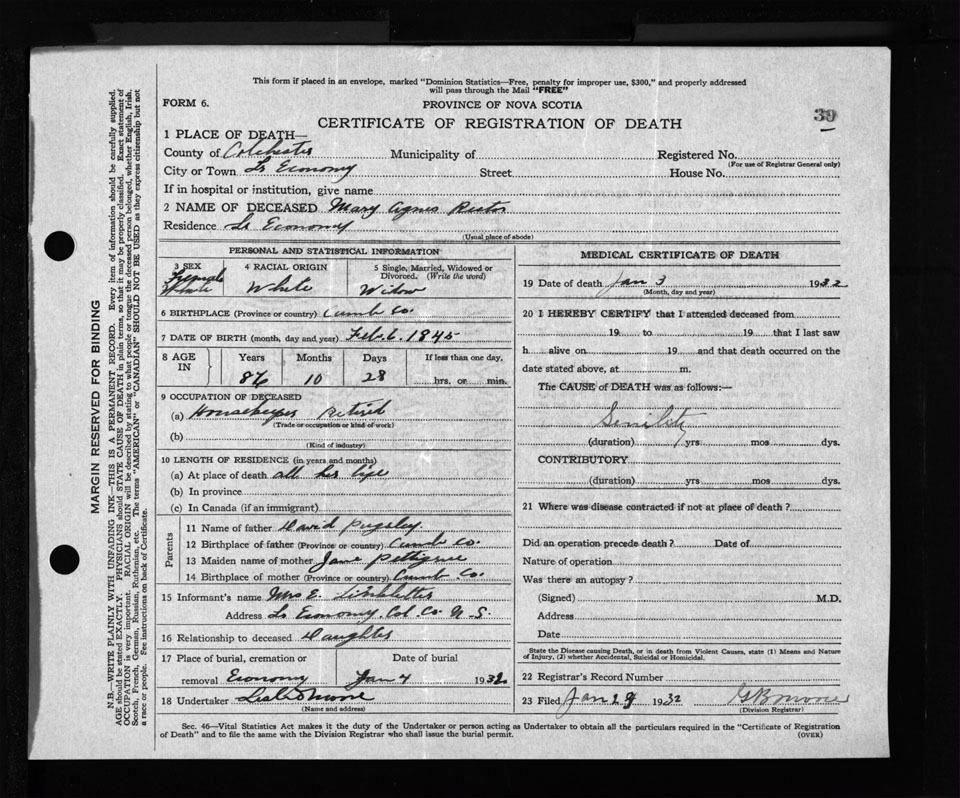 This form if placed in an envelope, marked "Dominion Statistics—Free, penalty for improper use, $300," and properly addressed
will pass through the Mail "FREE"
FORM 6.
PROVINCE OF NOVA SCOTIA
39
CERTIFICATE OF REGISTRATION OF DEATH
1 PLACE OF DEATH—
County of Colchester Municipality of Registered No.
(For use of Registrar General only)
City or Town Economy Street House No.
If in hospital or institution, give name
2 NAME OF DECEASED Mary Agnes Rector
Residence Economy
(Usual place of abode)
PERSONAL AND STATISTICAL INFORMATION
3 SEX 4 RACIAL ORIGIN 5 Single, Married, Widowed or
Divorced. (Write the word)
Female White Widow
6 BIRTHPLACE (Province or country) Cumb Co.
7 DATE OF BIRTH (month, day and year) Feb. 6. 1845
8 AGE IN Years Months Days If less than one day,
86 10 28 hrs. or min.
9 OCCUPATION OF DECEASED
(a) Housekeeper Retired
(Trade or occupation or kind of work)
(b)
(Kind of industry)
10 LENGTH OF RESIDENCE (in years and months)
(a) At place of death all her life
(b) In province
(c) In Canada (if an immigrant)
Parents
11 Name of father David Pugsley
12 Birthplace of father (Province or country) Cumb Co.
13 Maiden name of mother Jane Pettigrue
14 Birthplace of mother (Province or country) Cumb Co.
15 Informant's name Mrs E. Linkletter
Address Economy. Col. Co. N. S.
16 Relationship to deceased Daughter
17 Place of burial, cremation or Date of burial
removal Economy Jan 4 1932
18 Undertaker Moore
(Name and address)
MEDICAL CERTIFICATE OF DEATH
19 Date of death Jan 3 1932
(Month, day and year)
20 I HEREBY CERTIFY that I attended deceased from
19 to 19 that I last saw
h alive on 19 and that death occurred on the
date stated above, at m.
The CAUSE of DEATH was as follows:—
Senility
(duration) yrs. mos dys.
CONTRIBUTORY
(duration) yrs. mos. dys.
21 Where was disease contracted if not at place of death?
Did an operation precede death? Date of
Nature of operation
Was there an autopsy?
(Signed) M.D.
Address
Date
State the Disease causing Death, or in death from Violent Causes, state (1) Means and Nature
of Injury, (2) whether Accidental, Suicidal or Homicidal.
22 Registrar's Record Number
23 Filed Jan 1932 G B Moore
(Division Registrar)
Sec. 46—Vital Statistics Act makes it the duty of the Undertaker or person acting as Undertaker to obtain all the particulars required in the "Certificate of Registration
of Death" and to file the same with the Division Registrar who shall issue the burial permit.
(OVER)
MARGIN RESERVED FOR BINDING
N.B.—WRITE PLAINLY WITH UNFADING INK—THIS IS A PERMANENT RECORD. Every item of information should be carefully supplied.
AGE should be stated EXACTLY. PHYSICIANS should STATE CAUSE OF DEATH in plain terms, so that it may be properly classified. Exact statement of
OCCUPATION is very important. RACIAL ORIGIN will be described by stating to what people or tongue the deceased person belonged, whether English, Irish,
Scotch, French, German, Russian, Ruthenian, etc. The terms "AMERICAN" or "CANADIAN" SHOULD NOT BE USED as they express citizenship but not
a race or people. See instructions on back of Certificate.